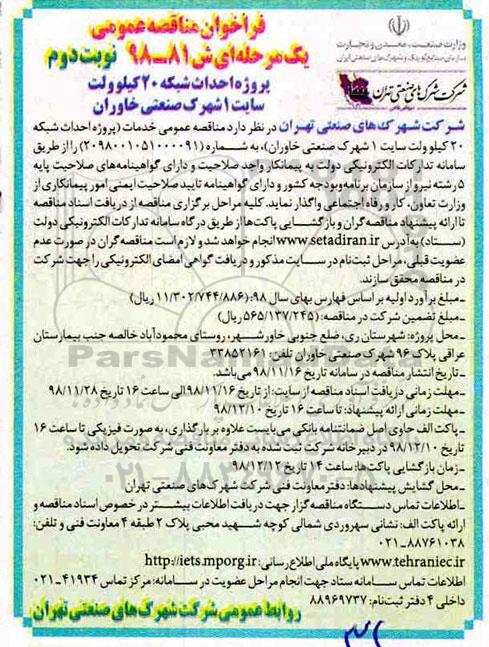 فراخوان مناقصه عمومی
یک مرحله‌ای ش ۸۱-۹۸ نوبت دوم
پروژه احداث شبکه ۲۰ کیلو ولت
سایت ۱ شهرک صنعتی خاوران
وزارت صنعت، معدن و تجارت
سازمان صنایع کوچک و شهرک‌های صنعتی ایران
شرکت شهرک‌های صنعتی تهران
شرکت شهرک‌های صنعتی تهران در نظر دارد مناقصه عمومی خدمات (پروژه احداث شبکه
۲۰ کیلو ولت سایت ۱ شهرک صنعتی خاوران)، به شماره (۲۰۹۸۰۰۱۰۵۱۰۰۰۰۹۱) را از طریق
سامانه تدارکات الکترونیکی دولت به پیمانکار واجد صلاحیت و دارای گواهینامه‌های صلاحیت پایه
۵ رشته نیرو از سازمان برنامه و بودجه کشور و دارای گواهینامه تایید صلاحیت ایمنی امور پیمانکاری از
وزارت تعاون، کار و رفاه اجتماعی واگذار نماید. کلیه مراحل برگزاری مناقصه از دریافت اسناد مناقصه
تا ارائه پیشنهاد مناقصه گران و بازگشایی پاکت‌ها از طریق درگاه سامانه تدارکات الکترونیکی دولت
(ستاد) به آدرس www.setadiran.ir انجام خواهد شد و لازم است مناقصه گران در صورت عدم
عضویت قبلی، مراحل ثبت‌نام در سایت مذکور و دریافت گواهی امضای الکترونیکی را جهت شرکت
در مناقصه محقق سازند.
ـ مبلغ برآورد اولیه بر اساس فهارس بهای سال ۹۸: (۱۱/۳۰۲/۷۴۴/۸۸۶ ریال)
ـ مبلغ تضمین شرکت در مناقصه: (۵۶۵/۱۳۷/۲۴۵ ریال)
ـ محل پروژه: شهرستان ری، ضلع جنوبی خاورشهر، روستای محمودآباد خالصه جنب بیمارستان
عراقی پلاک ۹۶ شهرک صنعتی خاوران تلفن: ۳۳۸۵۲۱۶۱
ـ تاریخ انتشار مناقصه در سامانه تاریخ ۹۸/۱۱/۱۶ می‌باشد.
ـ مهلت زمانی دریافت اسناد مناقصه از سایت: از تاریخ ۹۸/۱۱/۱۶ الی ساعت ۱۶ تاریخ ۹۸/۱۱/۲۸
ـ مهلت زمانی ارائه پیشنهاد: تا ساعت ۱۶ تاریخ ۹۸/۱۲/۱۰
ـ پاکت الف حاوی اصل ضمانتنامه بانکی می‌بایست علاوه بر بارگذاری، به صورت فیزیکی تا ساعت ۱۶
تاریخ ۹۸/۱۲/۱۰ در دبیرخانه شرکت ثبت شده به دفتر معاونت فنی شرکت تحویل داده شود.
ـ زمان بازگشایی پاکت‌ها: ساعت ۱۴ تاریخ ۹۸/۱۲/۱۲
ـ محل گشایش پیشنهادها: دفتر معاونت فنی شرکت شهرک‌های صنعتی تهران
ـ اطلاعات تماس دستگاه مناقصه گزار جهت دریافت اطلاعات بیشتر در خصوص اسناد مناقصه و
ارائه پاکت الف: نشانی سهروردی شمالی کوچه شهید محبی پلاک ۲ طبقه ۴ معاونت فنی و تلفن:
۰۲۱-۸۸۷۶۱۰۳۸
www.tehraniec.ir پایگاه ملی اطلاع رسانی: http://iets.mporg.ir
اطلاعات تماس سامانه ستاد جهت انجام مراحل عضویت در سامانه: مرکز تماس ۴۱۹۳۴-۰۲۱
داخلی ۴ دفتر ثبت‌نام: ۸۸۹۶۹۷۳۷
روابط عمومی شرکت شهرک‌های صنعتی تهران